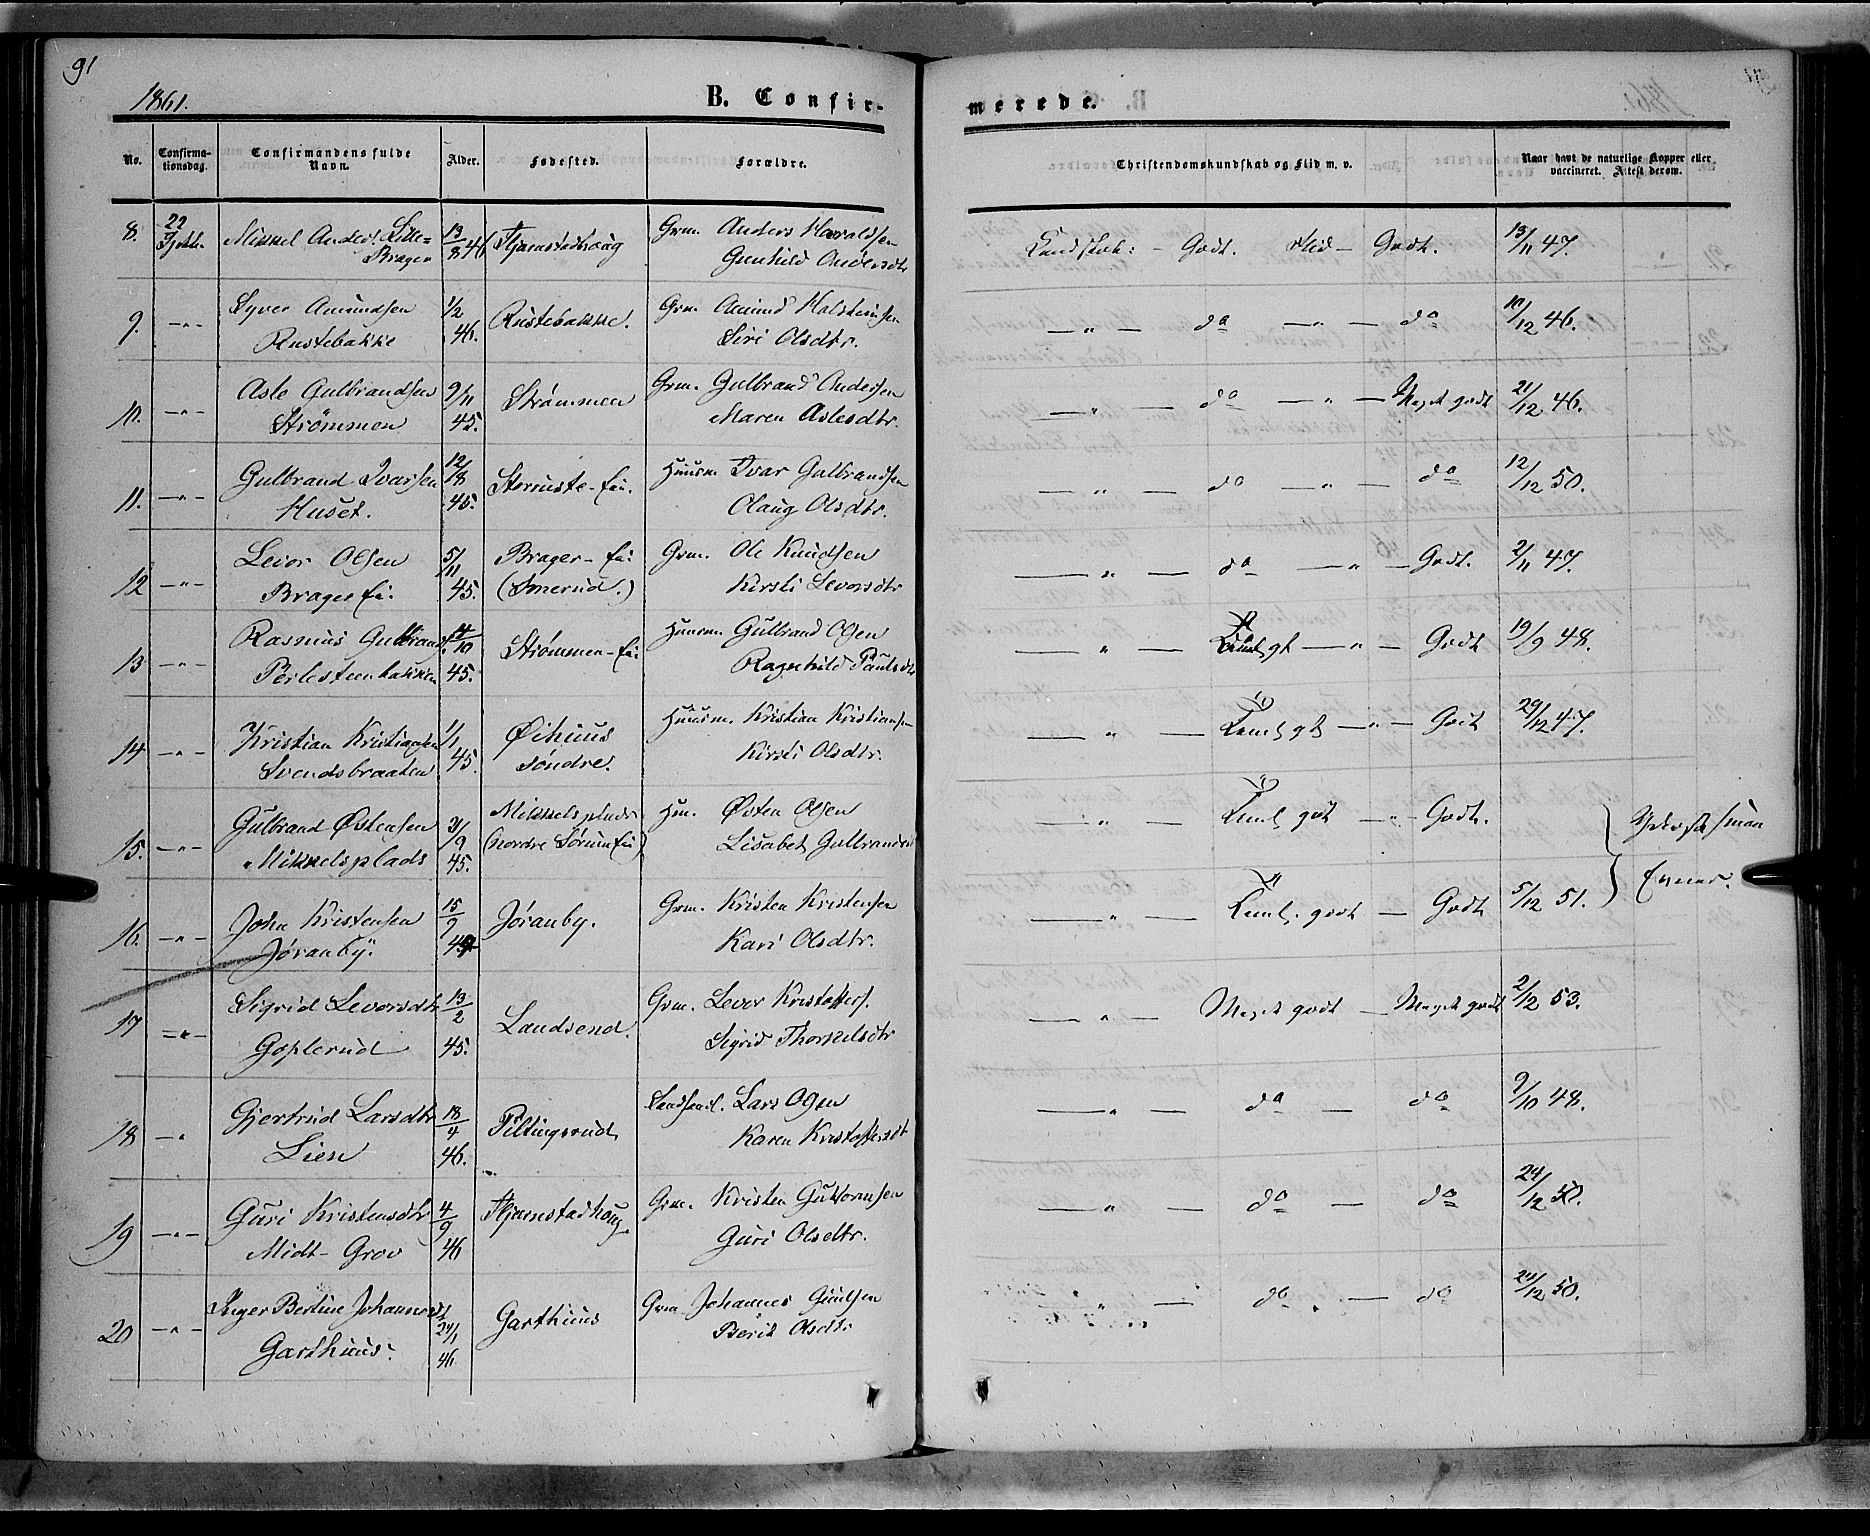 91
1861.
B. Confir-
merede.
No.
Confirma-
tionsdag.
Confirmandens fulde
Navn.
Alder.
Fødested.
Forældre.
Christendomskundskab og Flid m. v.
Naar havt de naturlige Kopper eller
vaccineret. Attest derom.
8. 22 Mikkel Anders. Lille= 13/8 46 Hjarnstadhoug Grm. Anders Haraldsen Kundskab: – Godt. Flid – Godt. 13/11 47.
Brager Gunhild Andersdtr
9. —"— Syver Amundsen 1/2 Rustebakke. Grm. Amund Halsteinsen — " — do — " — do 10/12 46.
Rustebakke 46. Siri Olsdtr.
10. —"— Asle Gulbrandsen 9/11 Strømmen Grm. Gulbrand Andersen — " — do — " — Meget godt 21/12 46.
Strømmen 45. Maren Aslesdtr.
11. —"— Gulbrand Ivarsen 12/18 Huusm. Ivar Gulbrandsen — " — do — " — do 12/12 50.
Huset. 45. Olaug Olsdtr.
12 —"— Levor Olsen 5/11 Brager-Ei: Grm. Ole Knudsen — " — do — " — Godt. 2/11 47.
Brager Ei. 45. (Smerud.) Kirsti Levorsdtr
13 —"— Rasmus Gulbrands. 14/10 Strømmen-Ei: Huusm. Gulbrand Olsen — " — gt — " — Godt 19/9 48.
Perlesteenbakken 45. Ragnhild Paulsdtr
14 —"— Kristian Kristiansen 1/1 Øihuus Huusm. Kristian Kristiansen — " — Teml. gt — " — Godt 29/12 47.
Svendsbraaten 45. søndre. Kirsti Olsdtr.
15. —"— Gulbrand Østensen 31/9 Mikkelsplads Hm. Østen Olsen — " — Teml. godt — " — Godt.
Mikkelsplads 45. (nordre Sørum Ei) Lisabet Gulbrandsd
} Evner.
16. —"— John Kristensen 15/9 Jøranby. Grm. Kristen Kristensen — " — Teml. godt — Godt 5/12 51.
Jøranby. Kari Olsdtr.
17 —"— Sigrid Levorsdtr 13/2 Landsend. Grm. Levor Kristoffers. — " — Meget godt — Meget godt 2/12 53.
Goplerud 45. Sigrid Thorkelsdtr
18 —" Gjertrud Larsdtr 18/4 Piltingsrud Lars Olsen — " — do — do 9/10 48.
Lien 46. Karen Kristoffersdt
19 —"— Guri Kristensdtr 4/9 Hjarnstadhoug Grm. Kristen Guttormsen — " — do — do 24/12 50.
Midt-Grov 46 Guri Olsdtr.
20 —"— Inger Bertine Johannesdt 24/1 Garthuus Grm. Johannes Gundsen " — do — do 24/12 50.
Garthuus. 46 Berit Olsdtr